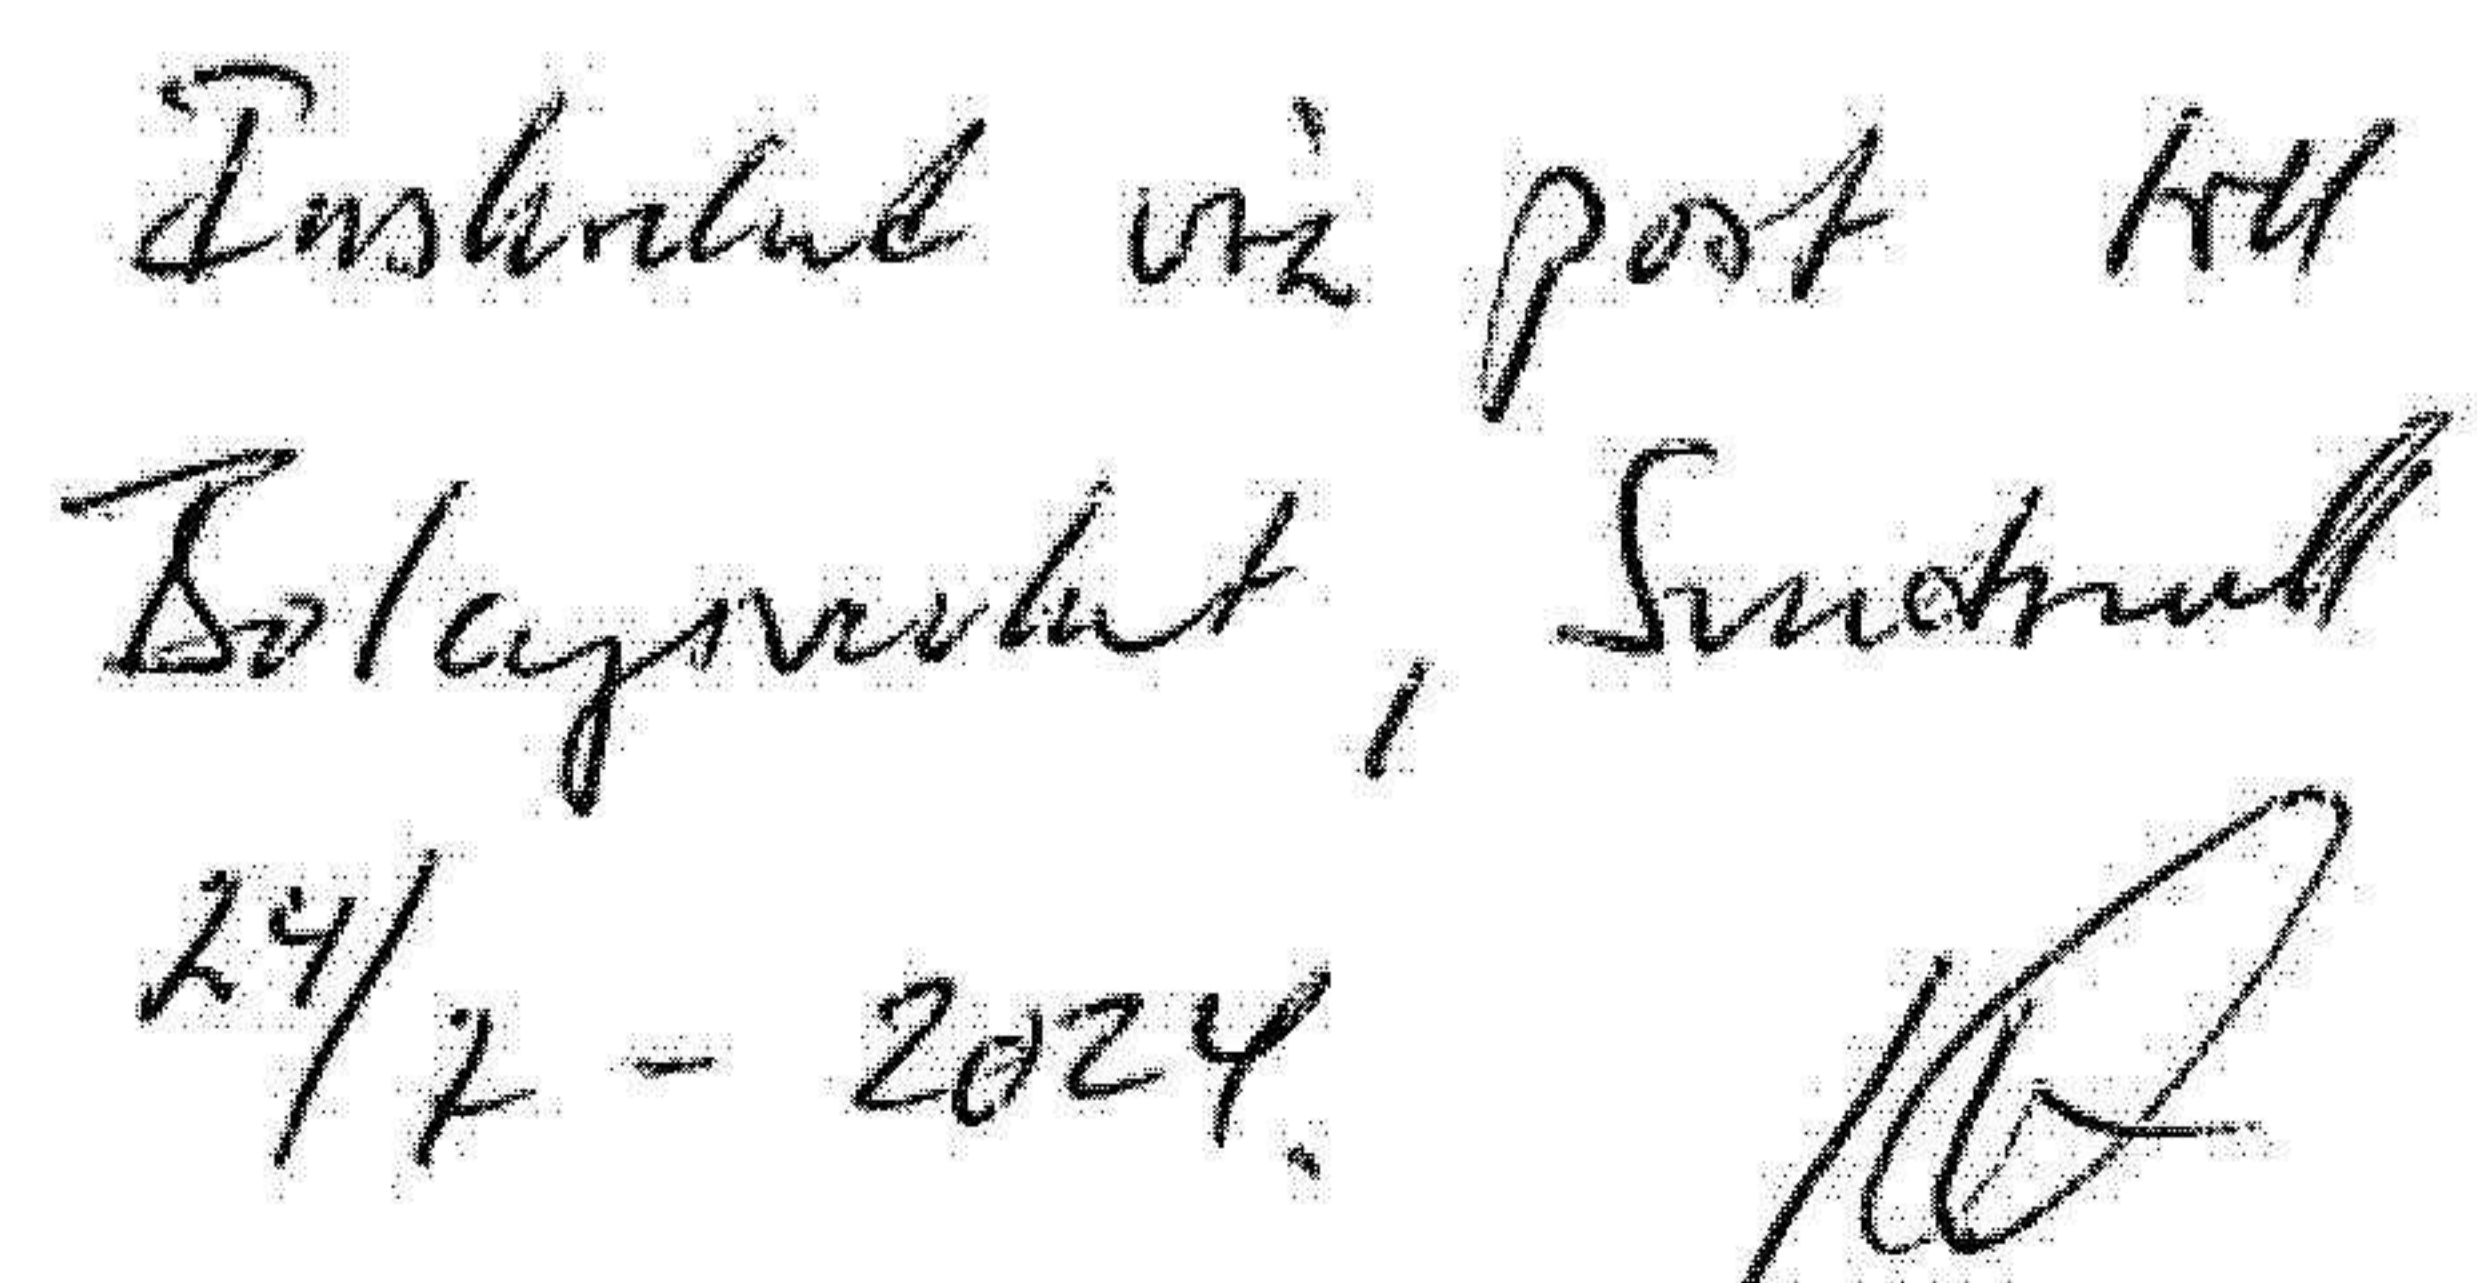 Inskickat via post till
Bolagsverket, Sundsvall
24/7 - 2024.